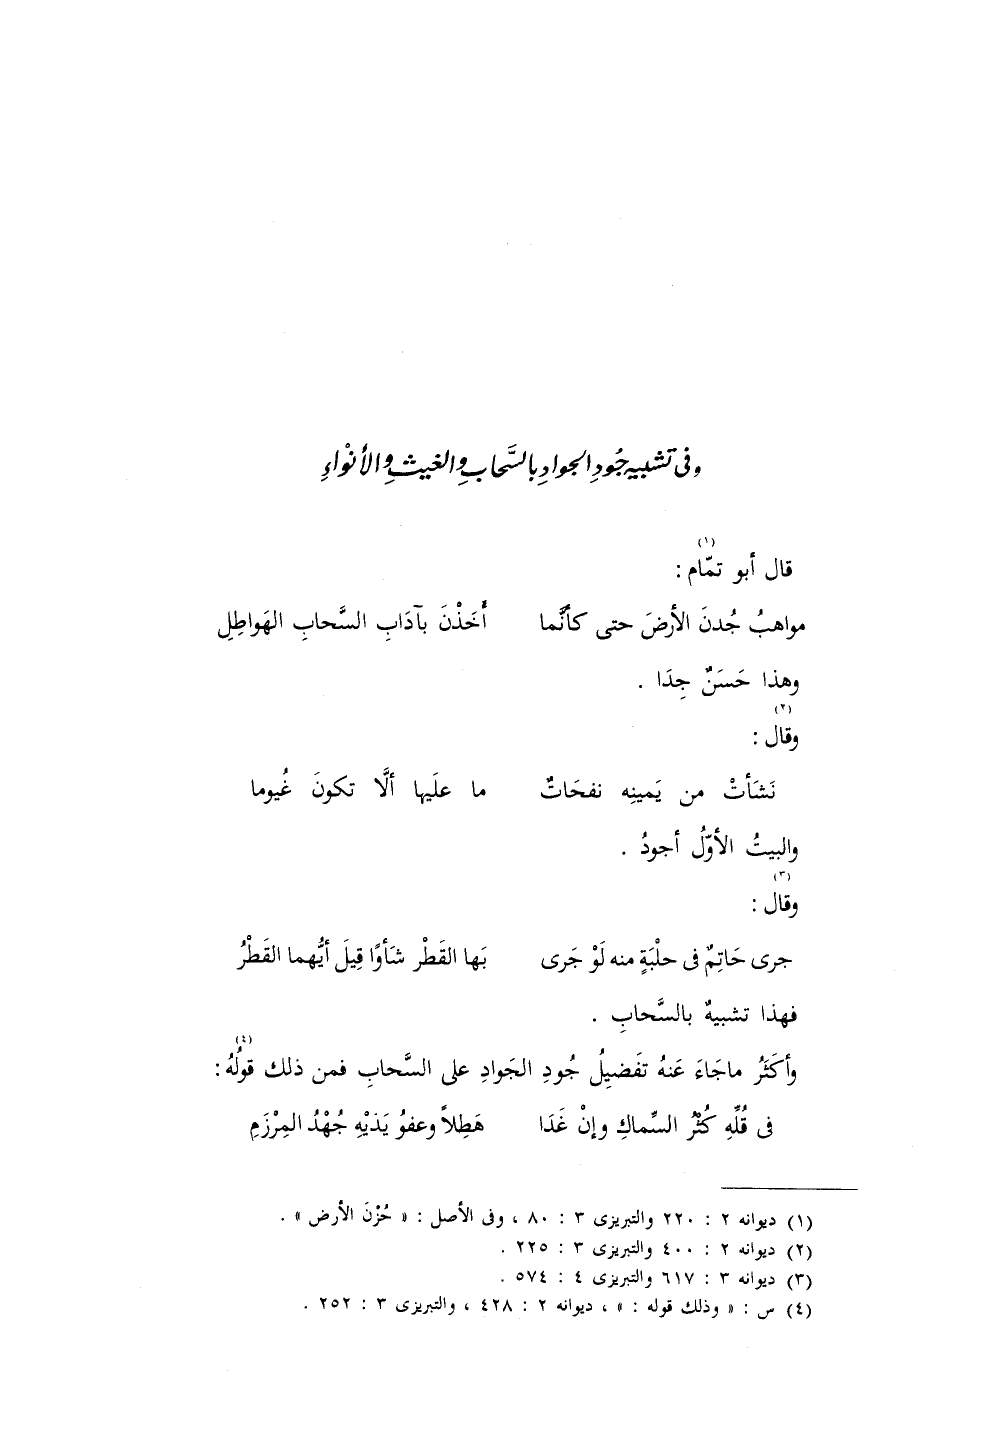 وفى تشبيه جُودِ الجوادِ بالسَّحابِ والغيثِ والأنْواءِ
قال أبو تمّام(١) :
مواهبُ جُدنَ الأرضَ حتى كأنَّما أَخَذْنَ بآدَابِ السَّحابِ الهَواطِلِ
وهذا حَسَنٌ جِدَا .
وقال(٢) :
نَشَأتْ من يَمينِه نفحَاتٌ ما علَيها ألَّا تكونَ غُيوما
والبيتُ الأوّلُ أجودُ .
وقال(٣) :
جرى حَاتِمٌ فى حلْبَةٍ منه لَوْ جَرى بَها القَطْر شَأوًا قِيلَ أيُّهما القَطْرُ
فهذا تشبيهٌ بالسَّحابِ .
وأكَثَرُ ماجَاءَ عَنهُ تفَضيِلُ جُودِ الجَوادِ على السَّحابِ فمن ذلك قولُهُ(٤) :
فى قُلِّهِ كُثْرُ السِّماكِ وإنْ غَدَا هَطِلاً وعفوُ يَديْهِ جُهْدُ المِرْزَمِ
(١) ديوانه ٢ : ٢٢٠ والتبريزى ٣ : ٨٠ ، وفى الأصل : « حُزْنَ الأرض » .
(٢) ديوانه ٢ : ٤٠٠ والتبريزى ٣ : ٢٢٥ .
(٣) ديوانه ٣ : ٦١٧ والتبريزى ٤ : ٥٧٤ .
(٤) س : « وذلك قوله : » ، ديوانه ٢ : ٤٢٨ ، والتبريزى ٣ : ٢٥٢ .